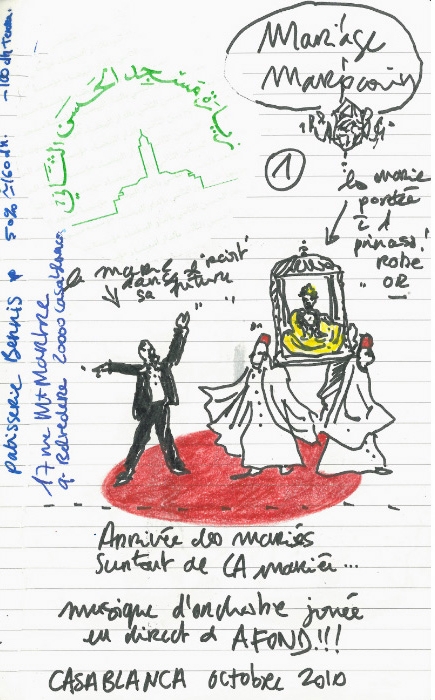 Mariage
Marocain
زيارة مسجد الحسن الثاني
1
la mariée
portée
à 1
princess!
Robe
OR
le marié "
dans
sa future
Patisserie Bennis
50% 160 dh.
17 rue Mt Martre
q. Belvedere 20000 Casablanca
Arrivée des mariés
surtout de LA mariée...
musique d'orchestre jouée
en direct et A FOND!!!
CASABLANCA octobre 2010